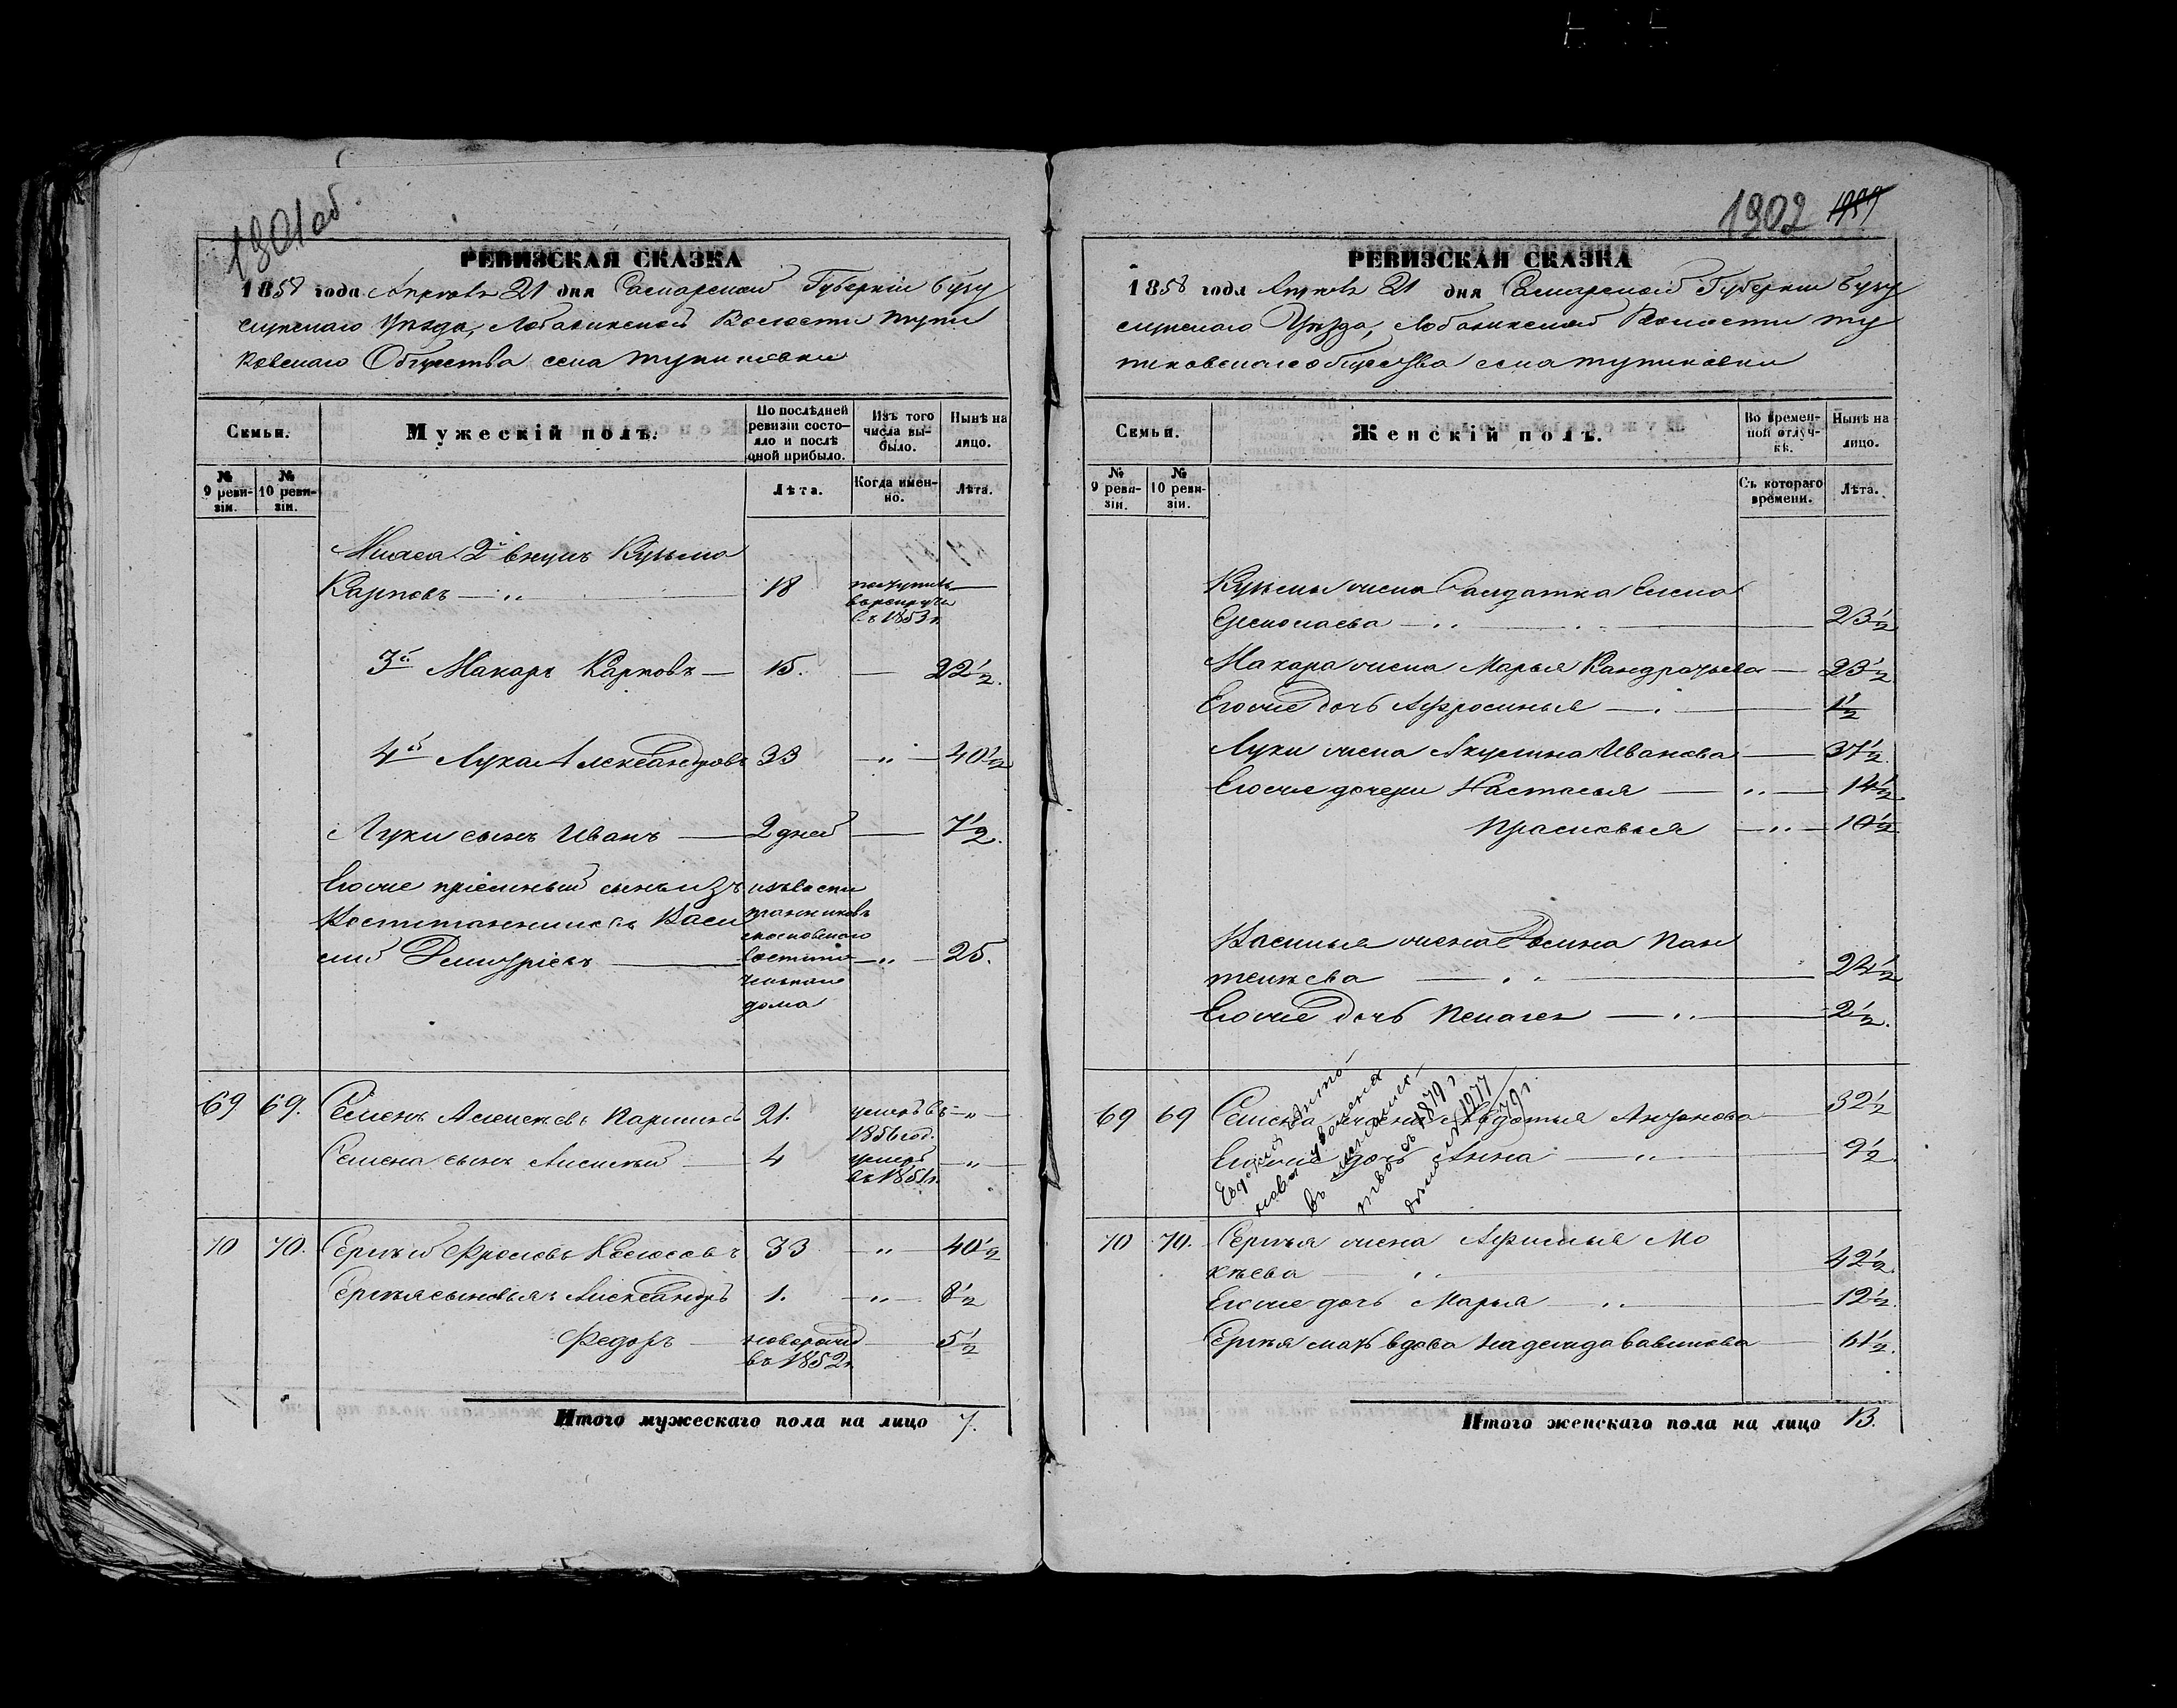 1301 об.
РЕВИЗСКАЯ СКАЗКА
1858 года Апреля 21 дня Самарской Губернии Бузу
лукскаго Уѣзда, Лобазинской Волости тупи
ковскаго Общества села тупиковки
Семьи.
Мужескій полъ.
По послѣдней ревизіи состо-
яло и послѣ оной прибыло.
Изъ того числа вы-
было.
Нынѣ на лицо.
№ 9 реви-
зіи.
№ 10 реви-
зіи.
Лѣта.
Когда имен-
но.
Лѣта.
2й внукъ Кузьма
Карповъ 18 поступилъ
въ рекруты
въ 1853 г.
3й Макаръ Карповъ 15. 22½.
4й Лука Александровъ 33 " 40½
Луки сынъ Иванъ 2 дней 7½.
Его же пріемный сынъ изъ
воспитанниковъ Васи
лій Дмитріевъ 25.
изъ воспи
танниковъ
московскаго
воспита
тельнаго
дома
69 69. Семенъ Алексѣевъ 21. умеръ въ "
1856 год.
Семена сынъ Алексѣй 4 умеръ "
въ 1851 г.
70 70. Сергѣй Фроловъ 33 " 40½
Сергѣя сыновья Александръ 1. " 8½
Федоръ новорожд 5½
въ 1852 г.
Итого мужескаго пола на лицо 7.
1302
РЕВИЗСКАЯ СКАЗКА
1858 года Апреля 21 дня Самарской Губернии Бузу
лукскаго Уѣзда, Лобазинской Волости ту
пиковскаго общества села тупиковки
Семьи.
Женскій полъ.
Во времен-
ной отлуч-
кѣ.
Нынѣ на лицо.
№ 9 реви-
зіи.
№ 10 реви-
зіи.
Съ котораго времени.
Лѣта.
Кузьмы жена Солдатка Елена
Ермолаева 23½
Макара жена Марья Кандратьева 23½
Его же дочь Афросинья 1½
Луки жена Акулина Иванова 37½
Его же дочери Настасья " 14½
Прасковья " 10½
Василья жена Пан
телѣева 24½
Его же дочь Пелагея 2½.
69 69 Семена жена Авдотья Антонова 32½
Его же дочь Анна " 9½
Евдокия Анто
нова уволена
въ
въ 1879 г.
дѣло № 1277
79 г.
70 70. Сергѣя жена Афимья Мо
кѣева 42½
Его же дочь Марья 12½
Сергѣя мать вдова Надежда Вавилова 61½.
Итого женскаго пола на лицо 13.